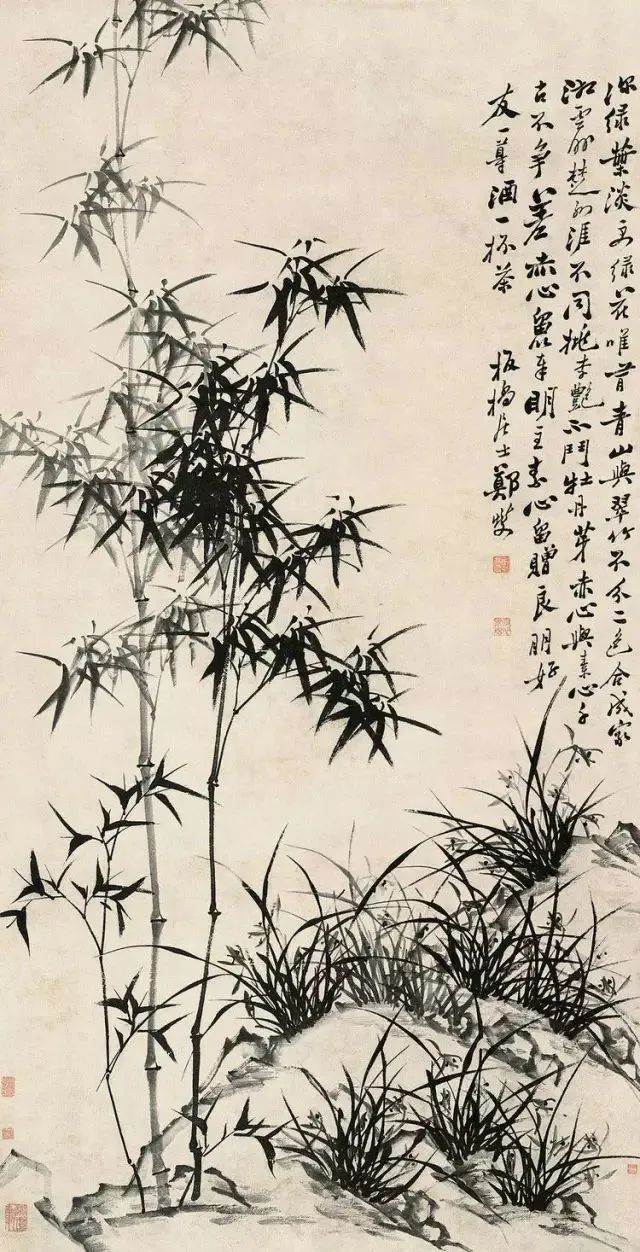 深綠葉淡綠花唯青山與翠竹不分二色合成家
湘雲楚涯不同桃李艷不鬥牡丹芽赤心與素心千
古不爭差赤心留奉明主素心留贈良朋好
友一尊酒一杯茶 板橋居士鄭燮